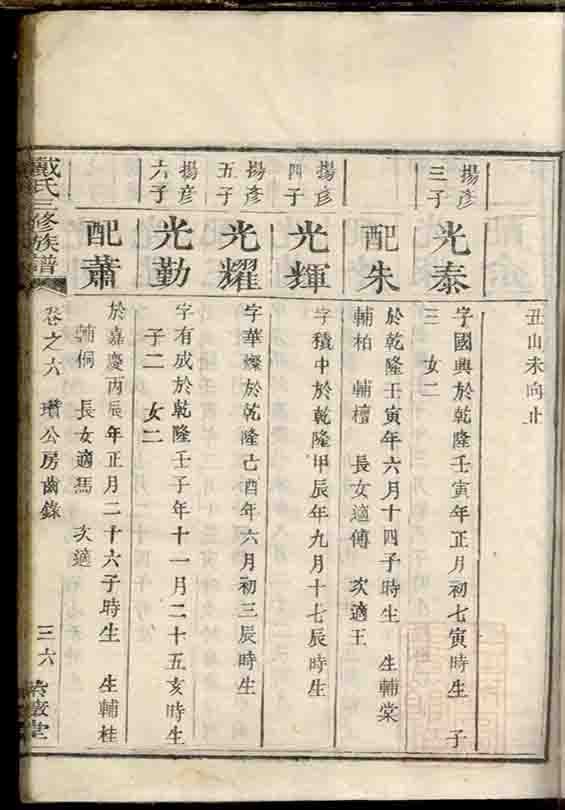 丑山未向止
揚彥三子
光泰
字國興於乾隆壬寅年正月初七寅時生 子
三 女二
配朱
於乾隆壬寅年六月十四子時生 生輔棠
輔柏 輔檀 長女適傅 次適王
揚彥四子
光輝
字積中於乾隆甲辰年九月十七辰時生
揚彥五子
光耀
字華燦於乾隆己酉年六月初三辰時生
揚彥六子
光勤
字有成於乾隆壬子年十一月二十五亥時生
子二 女二
配蕭
於嘉慶丙辰年正月二十六子時生 生輔桂
輔侗 長女適馬 次適
戴氏三修族譜
卷之六 公房齒錄 三六